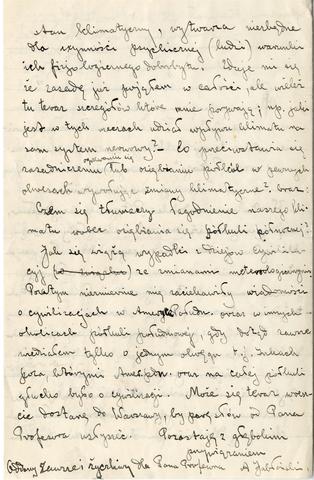 stan klimatyczny, wytwarza niezbędne
dla czynności psychicznej (ludzi) warunki
ich fizjologicznego dobrobytu. Zdaje mi się
że zasadę już pojąłem w całości, ale widzi
tu teraz szczegółów które mnie porywają; np. jaki
jest w tych rzeczach udział wpływu klimatu na
sam system nerwowy? Co przeciwstawia się
zasadniczemu lub oziębianiu półkul w pewnych
okresach wywołując zmiany klimatyczne? oraz
Czem się tłumaczy łagodnienie naszego kli-
matu wobec oziębiania się półkuli północnej?
Jak się wiążą wypadki z dziejów cywiliza-
cyj ze zmianami meteorologicznymi.
Pozatym niezmiernie mię zaciekawiły wiadomości
o cywilizacjach w oraz w innych
okolicach półkuli południowej, gdy dotąd zawsze
wiedziałem tylko o jednym t.j. Inkach
poza któremi oraz na całej półkuli
głucho było o cywilizacji. Może się teraz
dostanę do Warszawy, by parę słów od Pana
Profesora usłyszeć. Pozostaję z głębokim
przywiązaniem
Oddany zawsze i życzliwy dla Pana Profesora A Jabłoński